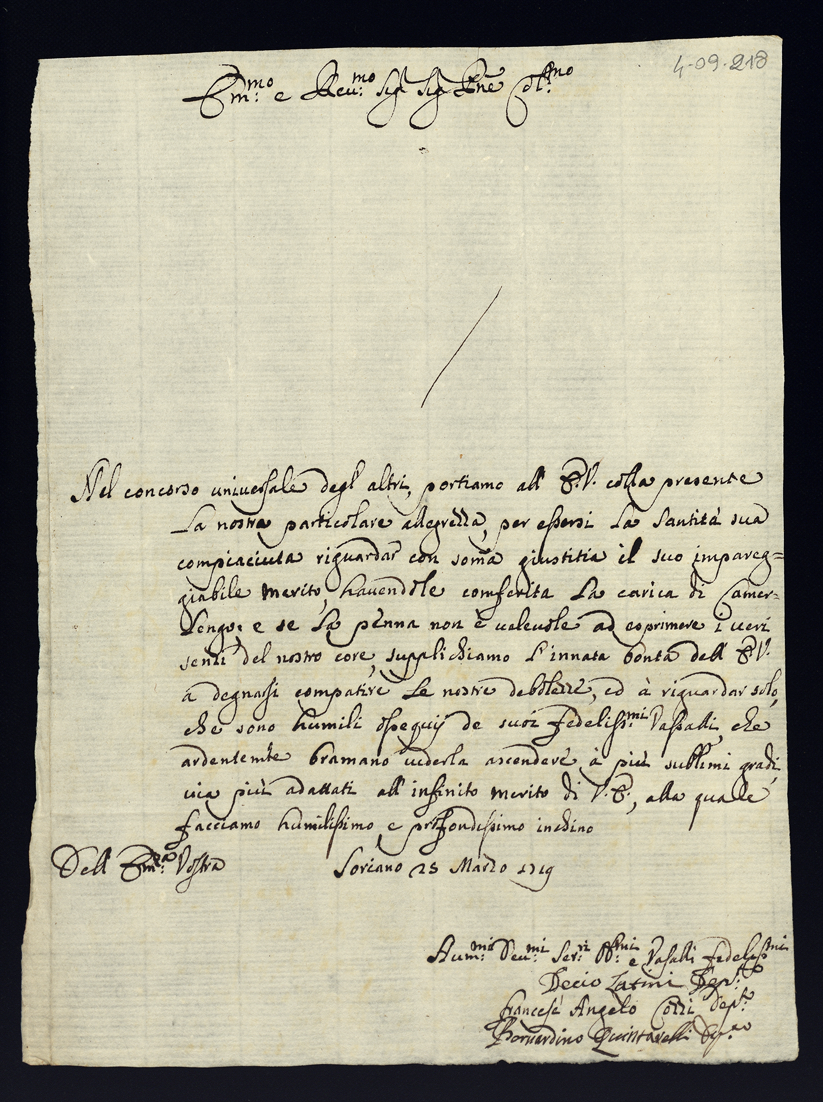 4-09-218
Em.mo e Reu.mo Sig.r Sig.r Pne Col.mo
Nel concorso uniuersale degl'altri, portiamo all'E.V. colla presente
La nostra particolare allegrezza, per essersi La Santità sua
compiaciuta riguardar con soma giustitia il suo impareg=
giabile merito, hauendole comferita La carica di Camer-
Lengo: e se La penna non è ualeuole ad esprimere i ueri
sensi del nostro core, supplichiamo L'innata bontà dell'E.V.
a degnarsi compatire Le nostre debolezze, ed à riguardar solo,
che sono humili ossequij de suoi fedelissi.mi Vassalli, che
ardentemte bramano uederla ascendere à più sublimi gradi,
uia più adattati all'infinito merito di V.E., alla quale
facciamo humilissimo, e profondissimo inchino
Dell'Em.za Vostra
Soriano 25 Marzo 1719
Aum.mi Deu.mi Ser.ri Obb.mi e Vasalli fedeliss.mi
Decio Latini Dep.to
Frances.o Angelo Cozzi Dep.to
Bernardino Quintarelli